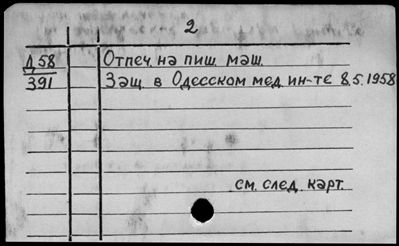 2
Д 58 Отпеч. на пиш. маш.
391 Защ. в Одесском мед. ин-те 8.5.1958
см. след. карт.